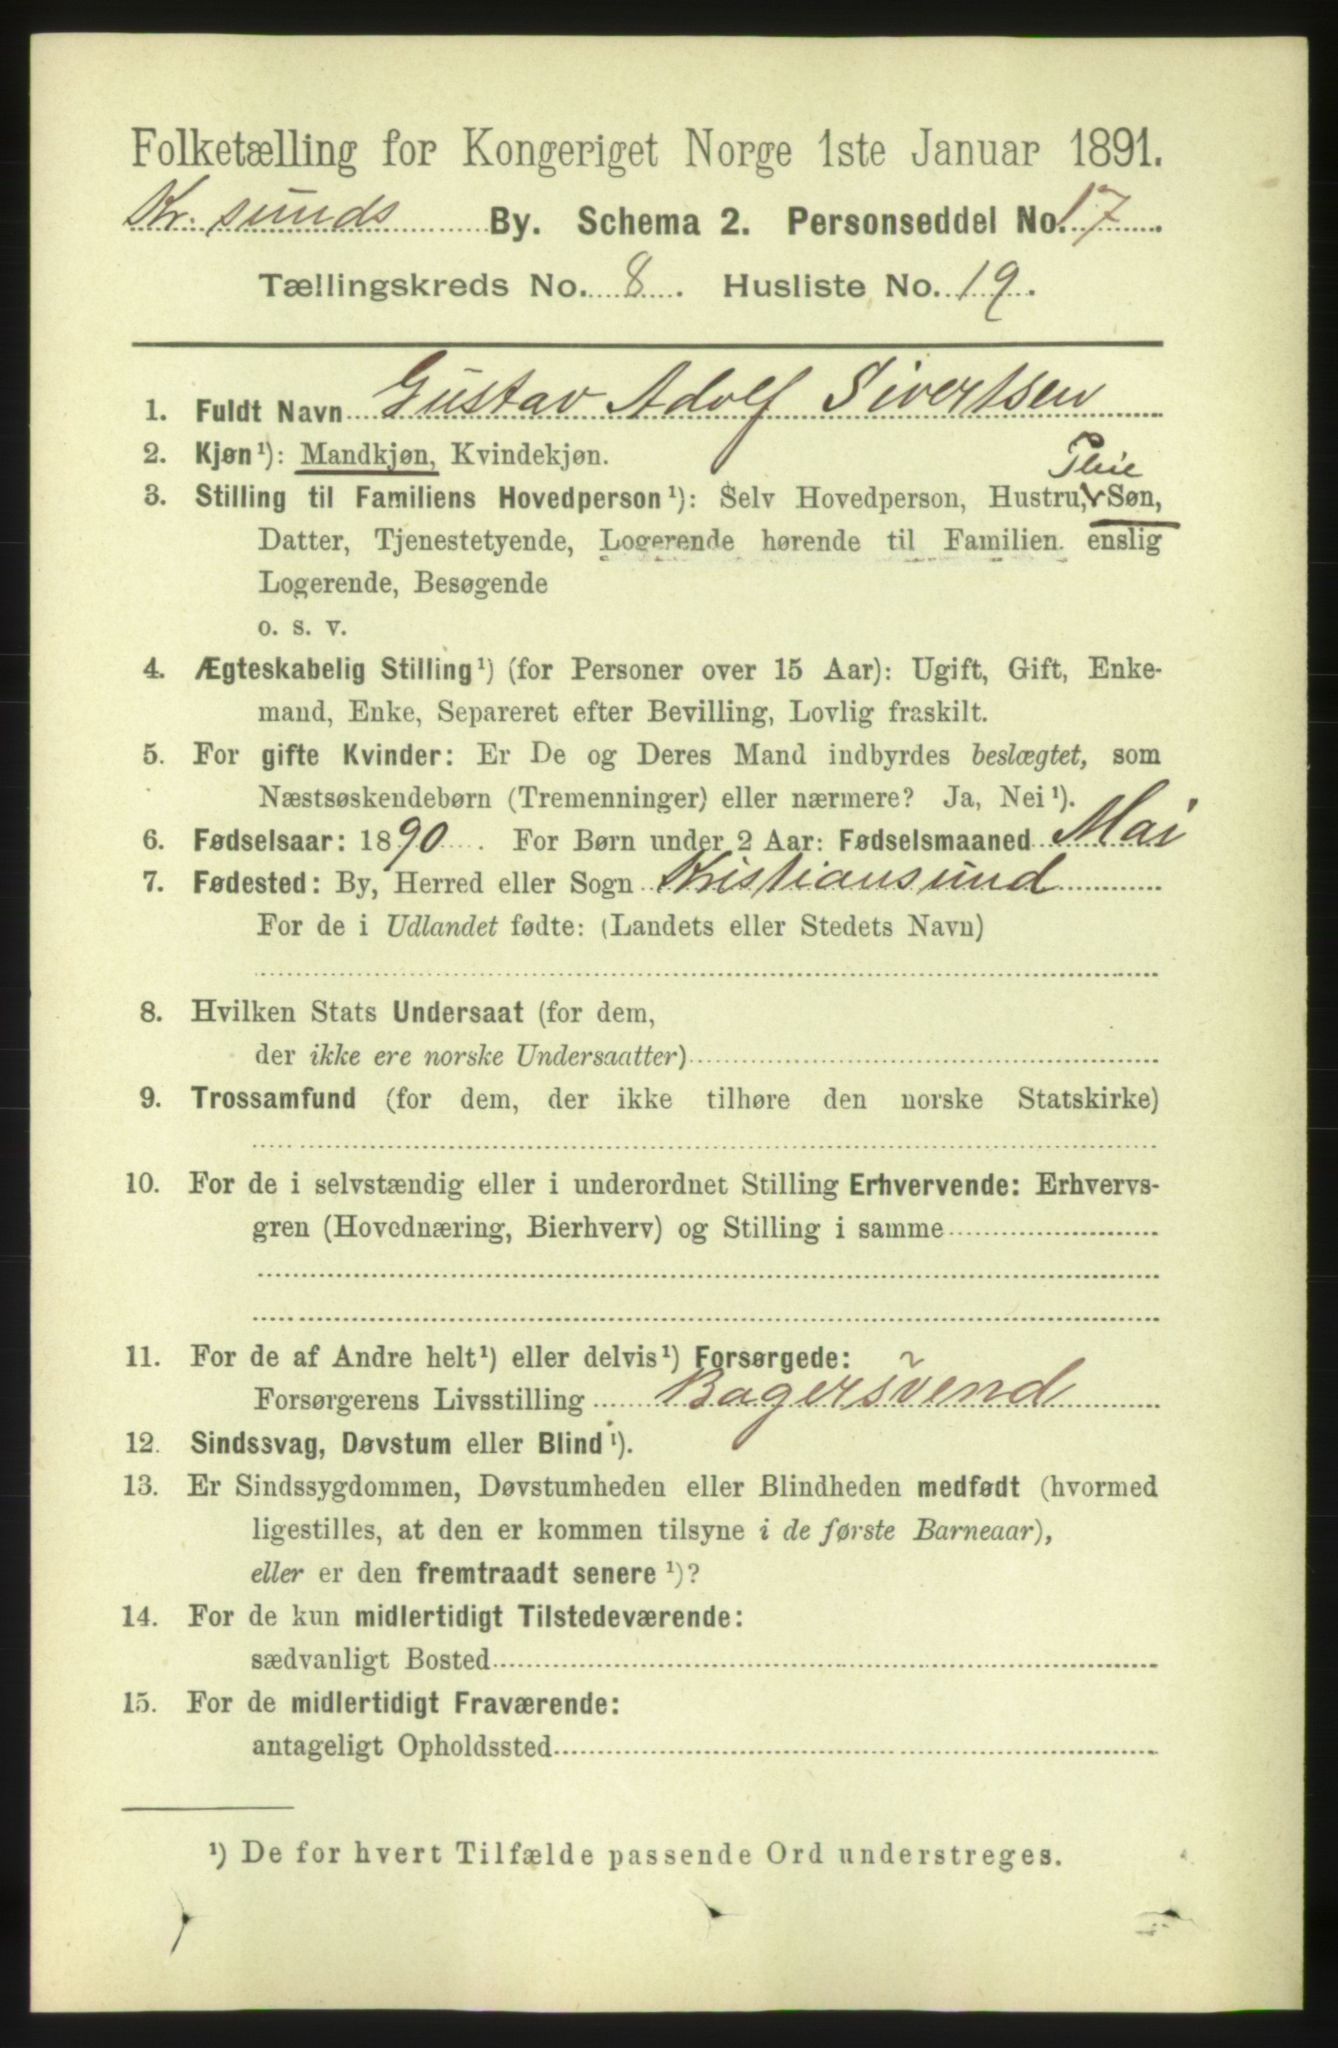 Folketælling for Kongeriget Norge 1ste Januar 1891.
Kr. sunds By. Schema 2. Personseddel No. 17.
Tællingskreds No. 8. Husliste No. 19.
1. Fuldt Navn Gustav Adolf Sivertsen
2. Kjøn¹): Mandkjøn, Kvindekjøn.
Pleie
3. Stilling til Familiens Hovedperson¹): Selv Hovedperson, Hustru, Søn,
Datter, Tjenestetyende, Logerende hørende til Familien, enslig
Logerende, Besøgende
o. s. v.
4. Ægteskabelig Stilling¹) (for Personer over 15 Aar): Ugift, Gift, Enke-
mand, Enke, Separeret efter Bevilling, Lovlig fraskilt.
5. For gifte Kvinder: Er De og Deres Mand indbyrdes beslægtet, som
Næstsøskendebørn (Tremenninger) eller nærmere? Ja, Nei¹).
6. Fødselsaar: 1890. For Børn under 2 Aar: Fødselsmaaned Mai
7. Fødested: By, Herred eller Sogn Kristiansund
For de i Udlandet fødte: (Landets eller Stedets Navn)
8. Hvilken Stats Undersaat (for dem,
der ikke ere norske Undersaatter)
9. Trossamfund (for dem, der ikke tilhøre den norske Statskirke)
10. For de i selvstændig eller i underordnet Stilling Erhvervende: Erhvervs-
gren (Hovednæring, Bierhverv) og Stilling i samme
11. For de af Andre helt¹) eller delvis¹) Forsørgede:
Forsørgerens Livsstilling Bagersvend
12. Sindssvag, Døvstum eller Blind¹).
13. Er Sindssygdommen, Døvstumheden eller Blindheden medfødt (hvormed
ligestilles, at den er kommen tilsyne i de første Barneaar),
eller er den fremtraadt senere¹)?
14. For de kun midlertidigt Tilstedeværende:
sædvanligt Bosted
15. For de midlertidigt Fraværende:
antageligt Opholdssted
¹) De for hvert Tilfælde passende Ord understreges.